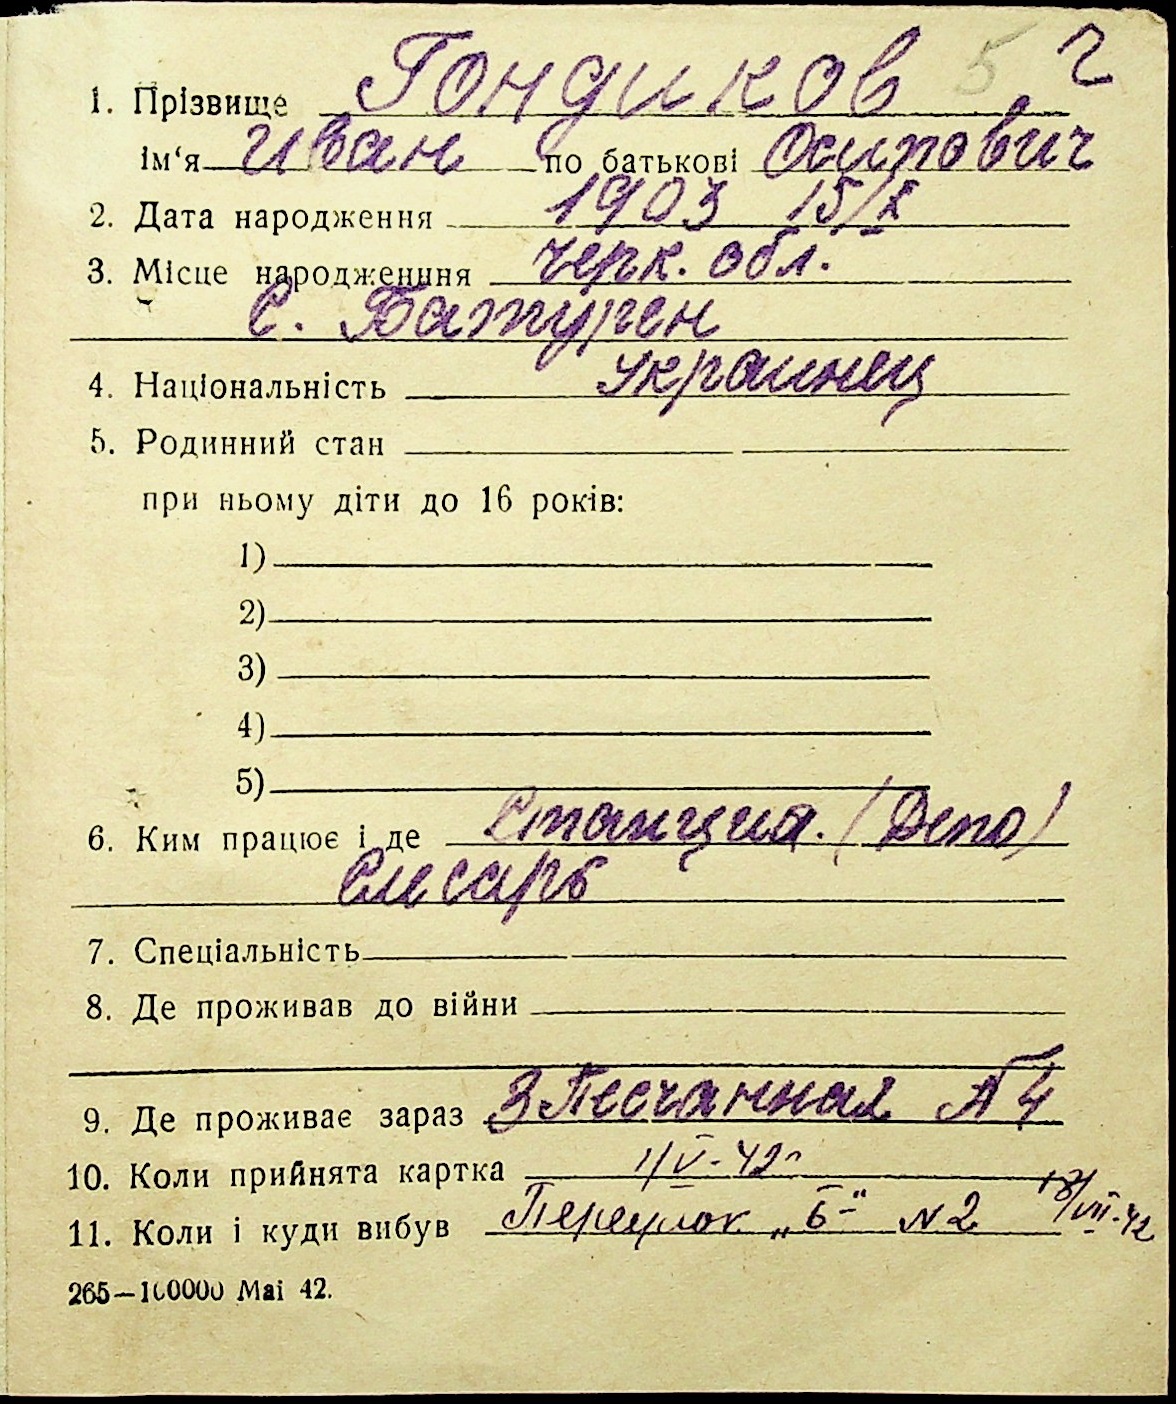 5 2
1. Прізвище Гондиков
ім‘я Иван по батькові Осипович
2. Дата народження 1903 15/X
3. Місце народженння Черк. обл.
с. Батурен
4. Національність Украинец
5. Родинний стан
при ньому діти до 16 років:
1)
2)
3)
4)
5)
6. Ким працює і де Станция. (Депо)
Слесарь
7. Спеціальність
8. Де проживав до війни
9. Де проживає зараз 3 Песчанная № 4
10. Коли прийнята картка 1/V-42г
11. Коли і куди вибув Переулок „Б“ N 2 18/VII-42
265—100000 Маі 42.